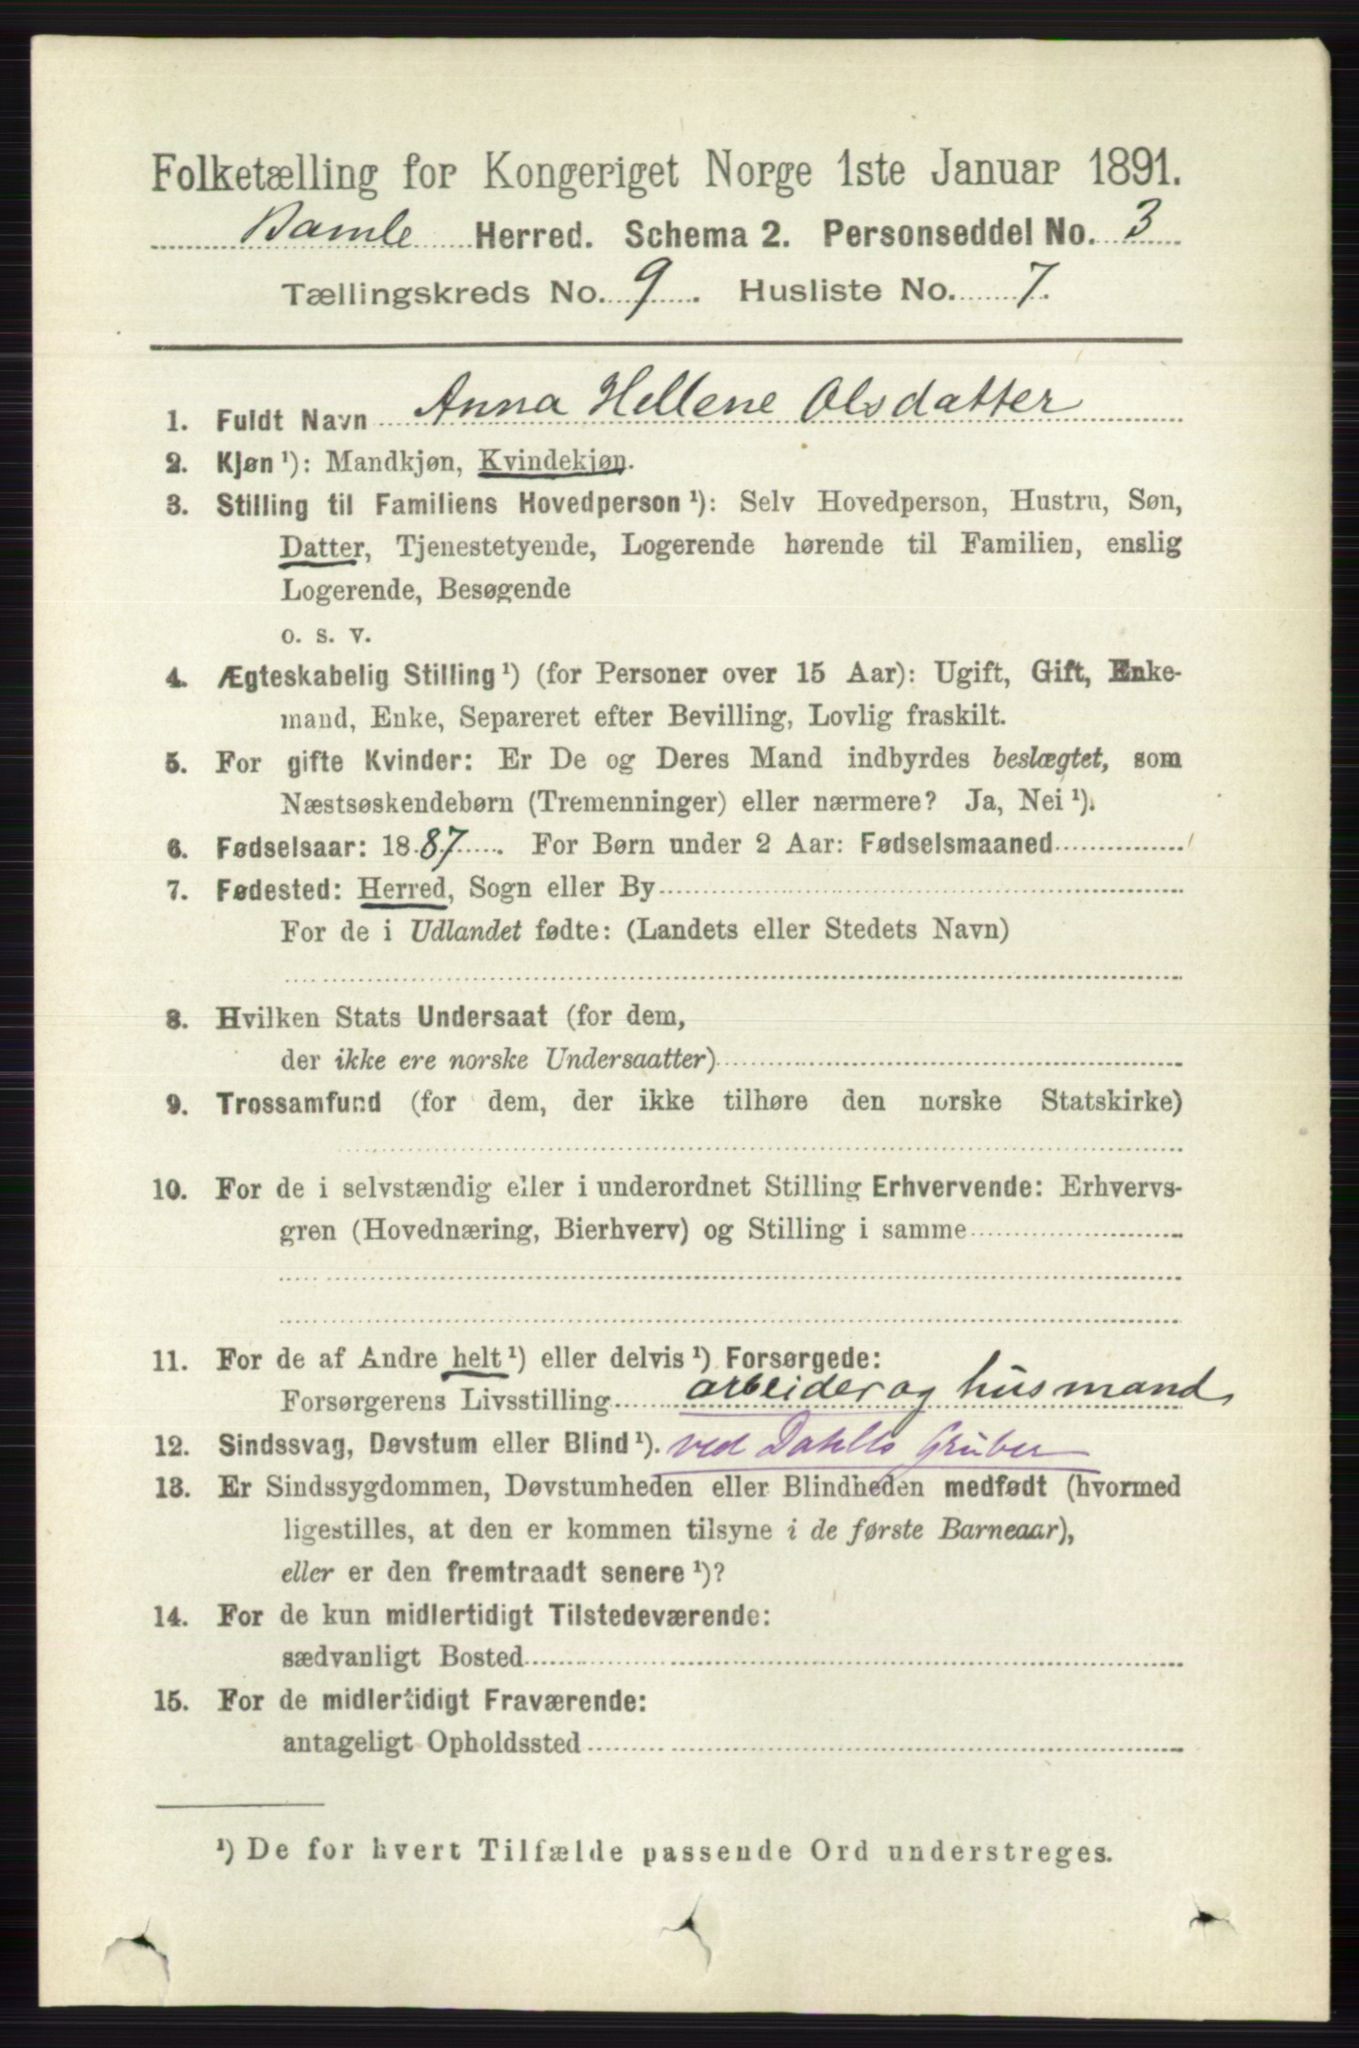 Folketælling for Kongeriget Norge 1ste Januar 1891.
Bamle Herred. Schema 2. Personseddel No. 3
Tællingskreds No. 9. Husliste No. 7.
1. Fuldt Navn Anna Hellene Olsdatter
2. Kjøn¹): Mandkjøn, Kvindekjøn.
3. Stilling til Familiens Hovedperson¹): Selv Hovedperson, Hustru, Søn,
Datter, Tjenestetyende, Logerende hørende til Familien, enslig
Logerende, Besøgende
o. s. v.
4. Ægteskabelig Stilling¹) (for Personer over 15 Aar): Ugift, Gift, Enke-
mand, Enke, Separeret efter Bevilling, Lovlig fraskilt.
5. For gifte Kvinder: Er De og Deres Mand indbyrdes beslægtet, som
Næstsøskendebørn (Tremenninger) eller nærmere? Ja, Nei¹).
6. Fødselsaar: 1887. For Børn under 2 Aar: Fødselsmaaned
7. Fødested: Herred, Sogn eller By
For de i Udlandet fødte: (Landets eller Stedets Navn)
8. Hvilken Stats Undersaat (for dem,
der ikke ere norske Undersaatter)
9. Trossamfund (for dem, der ikke tilhøre den norske Statskirke)
10. For de i selvstændig eller i underordnet Stilling Erhvervende: Erhvervs-
gren (Hovednæring, Bierhverv) og Stilling i samme
11. For de af Andre helt¹) eller delvis¹) Forsørgede:
Forsørgerens Livsstilling arbeider og husmand
12. Sindssvag, Døvstum eller Blind¹). ved Dahlls Gruber
13. Er Sindssygdommen, Døvstumheden eller Blindheden medfødt (hvormed
ligestilles, at den er kommen tilsyne i de første Barneaar),
eller er den fremtraadt senere¹)?
14. For de kun midlertidigt Tilstedeværende:
sædvanligt Bosted
15. For de midlertidigt Fraværende:
antageligt Opholdssted
¹) De for hvert Tilfælde passende Ord understreges.